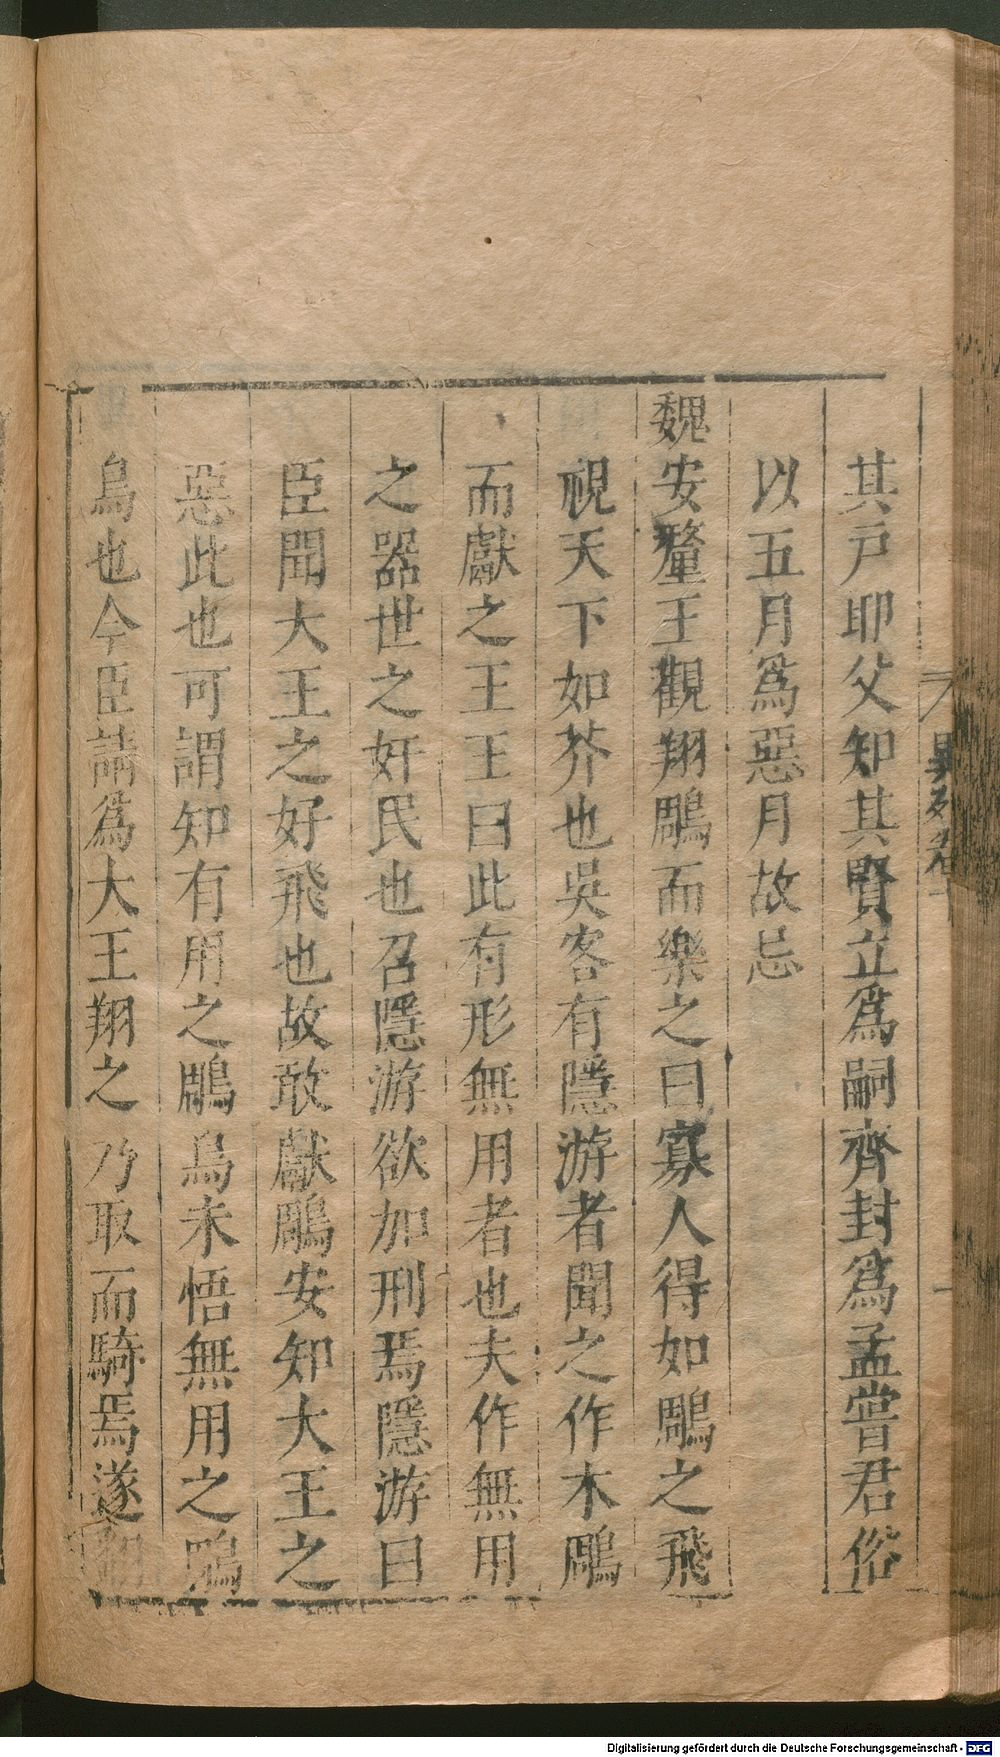 其戸耶父知其賢立爲嗣齊封爲孟嘗君俗
以五月爲惡月故忌
魏安釐王觀翔鵰而樂之曰寡人得如鵰之飛
視天下如芥也吳客有隱游者聞之作木鵰
而獻之王王曰此有形無用者也夫作無用
之器世之奸民也召隱游欲加刑焉隱游曰
臣聞大王之好飛也故敢獻鵰安知大王之
惡此也可謂知有用之鵰鳥未悟無用之鵰
鳥也今臣請爲大王翔之乃取而騎焉遂翻
Digitalisierung gefördert durch die Deutsche Forschungsgemeinschaft - DFG